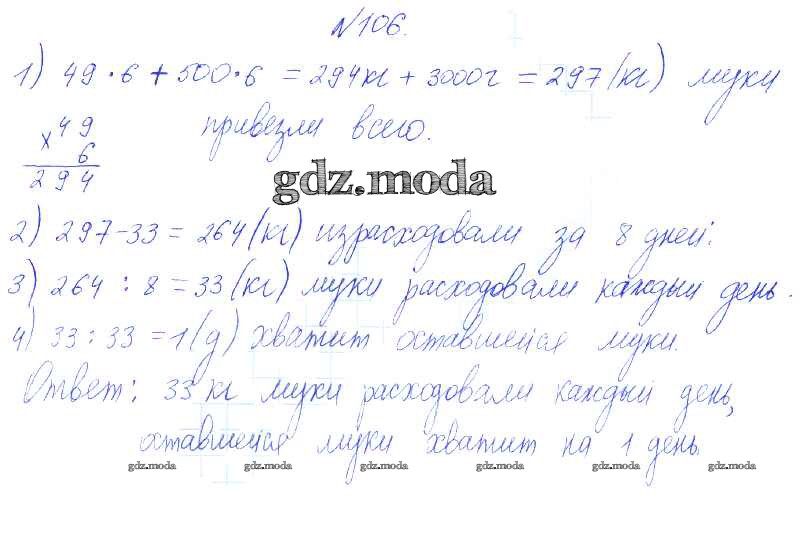 №106.
1) 49·6 + 500·6 = 294кг + 3000г = 297(кг) муки
привезли всего.
×49
6
294
gdz.moda
2) 297-33 = 264(кг) израсходовали за 8 дней.
3) 264 : 8 = 33(кг) муки расходовали каждый день.
4) 33 : 33 = 1(д) хватит оставшейся муки.
Ответ: 33 кг муки расходовали каждый день,
оставшейся муки хватит на 1 день.
gdz.moda gdz.moda gdz.moda gdz.moda gdz.moda gdz.moda